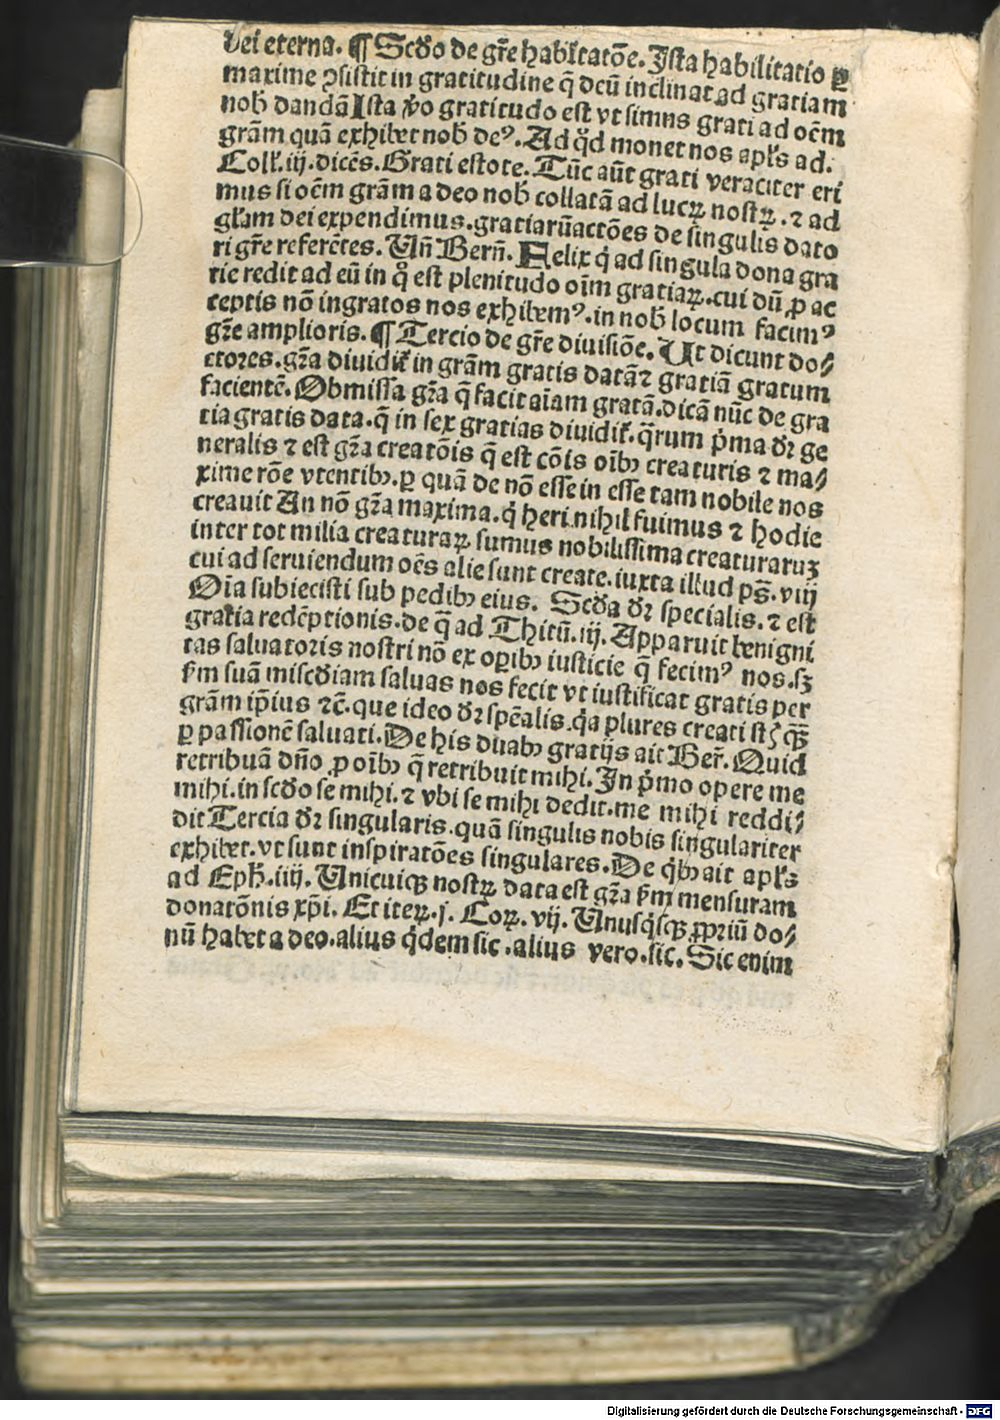 dei eterna. ¶ Scďo de gr̃e habilitatõe. Ista habilitatio ꝑ
maxime ꝯsistit in gratitudine q̃ dcũ inclinat ad gratiam
nob̃ dandã Ista ṽo gratitudo est vt simus grati ad oẽm
grãm quã exhibet nob̃ deꝰ. Ad qď monet nos apl̃s ad.
Coll̃. iij. dicẽs. Grati estote. Tũc aũt grati veraciter eri
mus si oẽm grãm a deo nob̃ collatã ad lucꝝ nostꝝ. ⁊ ad
gl̃am dei expendimus. gratiarũactões de singulis dato
ri gr̃e referẽtes. Uñ Berñ. Felix q̇ ad singula dona gra
tie redit ad eũ in qͦ est plenitudo oĩm gratiaꝝ. cui dũ ꝓ ac
ceptis nõ ingratos nos exhibemꝰ. in nob̃ locum facimꝰ
gr̃e amplioris. ¶ Tercio de gr̃e diuisiõe. Ut dicunt do⸗
ctores. gr̃a diuidit̃ in grãm gratis datã ⁊ gratiã gratum
facientẽ. Obmissa gr̃a q̃ facit aĩam gratã. dicã nũc de gra
tia gratis data. q̃ in sex gratias diuidit̃. q̃rum p̃ma dr̃ ge
neralis ⁊ est gr̃a creatõis q̃ est cõis oĩbꝫ creaturis ⁊ ma⸗
xime rõe vtentibꝫ. ꝑ quã de nõ esse in esse tam nobile nos
creauit An nõ gr̃a maxima. q̇ heri nihil fuimus ⁊ hodie
inter tot milia creaturaꝝ sumus nobilissima creaturaruꝫ
cui ad seruiendum oẽs alie sunt create. iuxta illud ps̃. viij
Oĩa subiecisti sub pedibꝫ eius. Scďa dr̃ specialis. ⁊ est
gratia redẽptionis. de q̃ ad Thitũ. iij. Apparuit benigni
tas saluatoris nostri nõ ex oꝑibꝫ iusticie q̃ fecimꝰ nos. sꝫ
ẜm suã miscďiam saluas nos fecit vt iustificat gratis per
grãm ip̃ius ⁊c̃. que ideo dr̃ spẽalis. q̇a plures creati st̃ qꝫ̃
ꝑ passionẽ saluati. De his duabꝫ gratijs ait Ber̃. Quid
retribuã dño ꝓ oĩbꝫ q̃ retribuit mihi. In p̃mo opere me
mihi. in scďo se mihi. ⁊ vbi se mihi dedit. me mihi reddi⸗
dit Tercia dr̃ singularis. quã singulis nobis singulariter
exhibet. vt sunt inspiratões singulares. De q̇bꝫ ait apl̃s
ad Eph̃. iiij. Unicuiqꝫ nostꝝ data est gr̃a ẜm mensuram
donatõnis xp̃i. Et iteꝝ. j. Coꝝ. vij. Unusq̇sqꝫ ꝓpriũ do⸗
nũ habet a deo. alius q̇dem sic. alius vero. sic. Sic enim
Digitalisierung gefördert durch die Deutsche Forschungsgemeinschaft - DFG